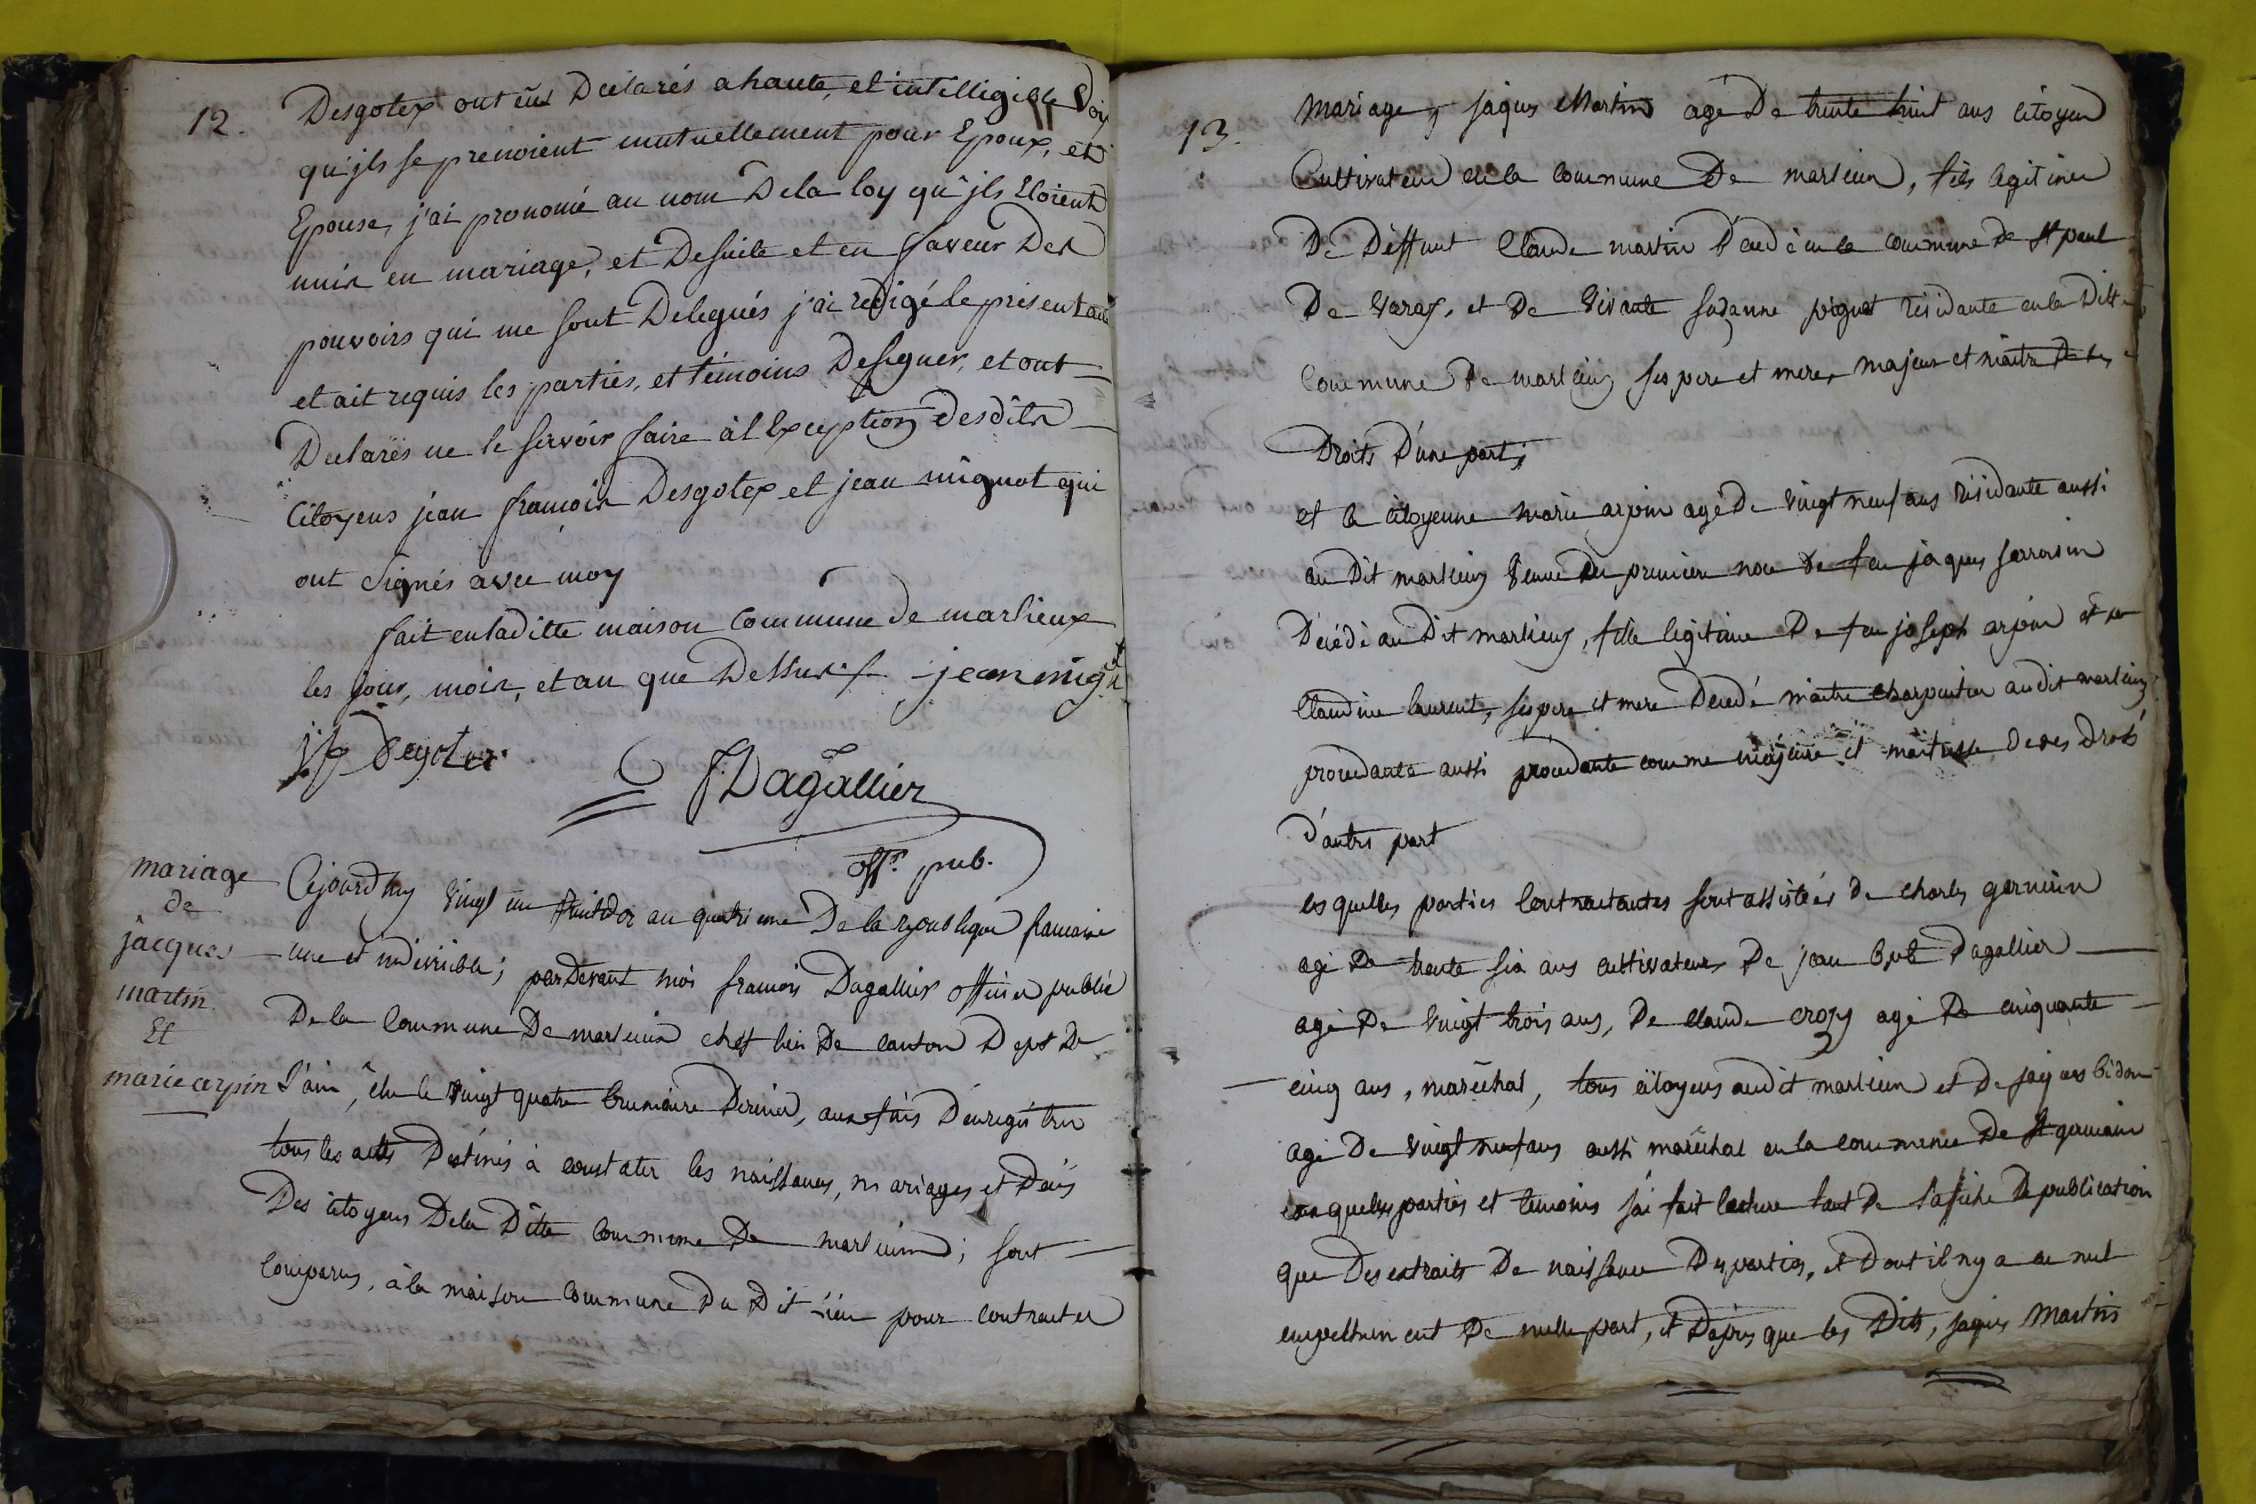 12.
Desgotex ont eus Declarés a haute, et intelligible Voix
qu'jls se prenoient mutuellement pour Epoux, et
Epouse, j'ai prononcé au nom De la loy qu'jls Etoient
unis en mariage, et De suite et en faveur Des
pouvoirs qui me sont Delegués j'ai redigé le présent acte
et ait requis les parties, et témoins De signer, et ont
Declarés ne le scavoir faire à l'Exception Desdits
Citoyens jean francois Desgotex et jean mignot qui
ont Signés avec moy
fait en laditte maison Commune de marlieux
les jour, mois, et an que Dessus
jean mignt
Degotex
Dagallier
offr. pub.
mariage
de
jacques
martin
Et
marie arpin
Cejourdhuy vingt un fruitidor an quatrieme De la republique francaise
une et indivisible; pardevant moi francois Dagallier officier public
De la Commune De marlieux cheff lieu De canton Dept De
l'ain, élu le vingt quatre brumaire Dernier, aux fins D'enregistrer
tous les actes Destinés à constater les naissances, mariages et Décés
Des citoyens De la Ditte commune De marlieux; sont
comparus, à la maison commune Du Dit lieu pour contracter
13.
mariage, jaques Martin agé De trente huit ans citoyen
Cultivateur en la commune De marlieux, fils legitime
De Deffunt Claude martin Décedé en la commune De St paul
De varax, et De vivante suzanne piguet résidante en la Ditte
Commune De marlieux ses pere et mere, majeur et maitre De ses
Droits D'une part;
et la citoyenne marie arpin agé De vingt neuf ans résidante aussi
au Dit marlieux veuve En premiere noce De feu jaques sarrasin
Décédé au Dit marlieux, fille legitime De feu joseph arpin et de
Claudine laurent, ses pere et mere Décedé maitre charpentier audit marlieux
procedante aussi procedante comme majeure et maitresse De ses Droits
D'autre part
lesquelles parties Contractantes sont assistées de charles
agé De trente six ans cultivateur, De jean bpte Dagallier
agé De vingt trois ans, De claude crozy agé De cinquante
cinq ans, maréchal, tous citoyens audit marlieux et De jaques bidon
agé De vingt neuf ans aussi maréchal en la commune De St germain
auxquelles parties et temoins j'ai fait lecture tant De l'afiche De publication
que Des extraits De naissance Des parties, et Dont il ny a eu nul
empeshement De nulle part, et Dépuis que les Dits, jaques Martin